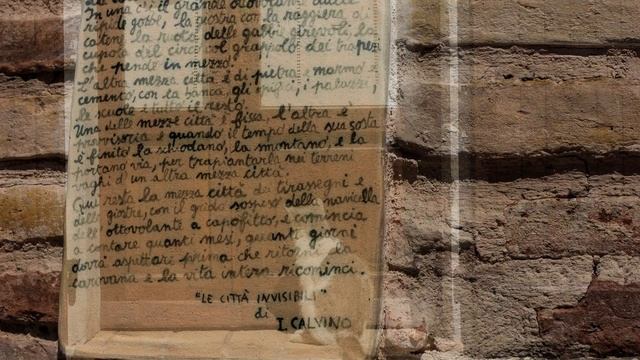 In una c'è il grande ottovolante dalle
ripide gobbe, la giostra con la raggiera di
catene la ruota delle gabbie girevoli, la
cupola del circo col grappolo dei trapezi
che pende in mezzo.
L'altra mezza città è di pietra e marmo e
cemento, con la banca, gli opifici, i palazzi,
le scuole e tutto il resto.
Una delle mezze città è fissa, l'altra è
provvisoria e quando il tempo della sua sosta
è finito la schiodano, la smontano, e la
portano via, per trapiantarla nei terreni
vaghi d'un altra mezza città.
Qui resta la mezza città dei tirasegni e
delle giostre, con il grido sospeso della navicella
dell'ottovolante a capofitto, e comincia
a contare quanti mesi, quanti giorni
dovrà aspettare prima che ritorni la
carovana e la vita intera ricominci.
"LE CITTÀ INVISIBILI"
di
I. CALVINO